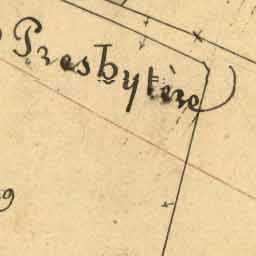 Presbytère
9